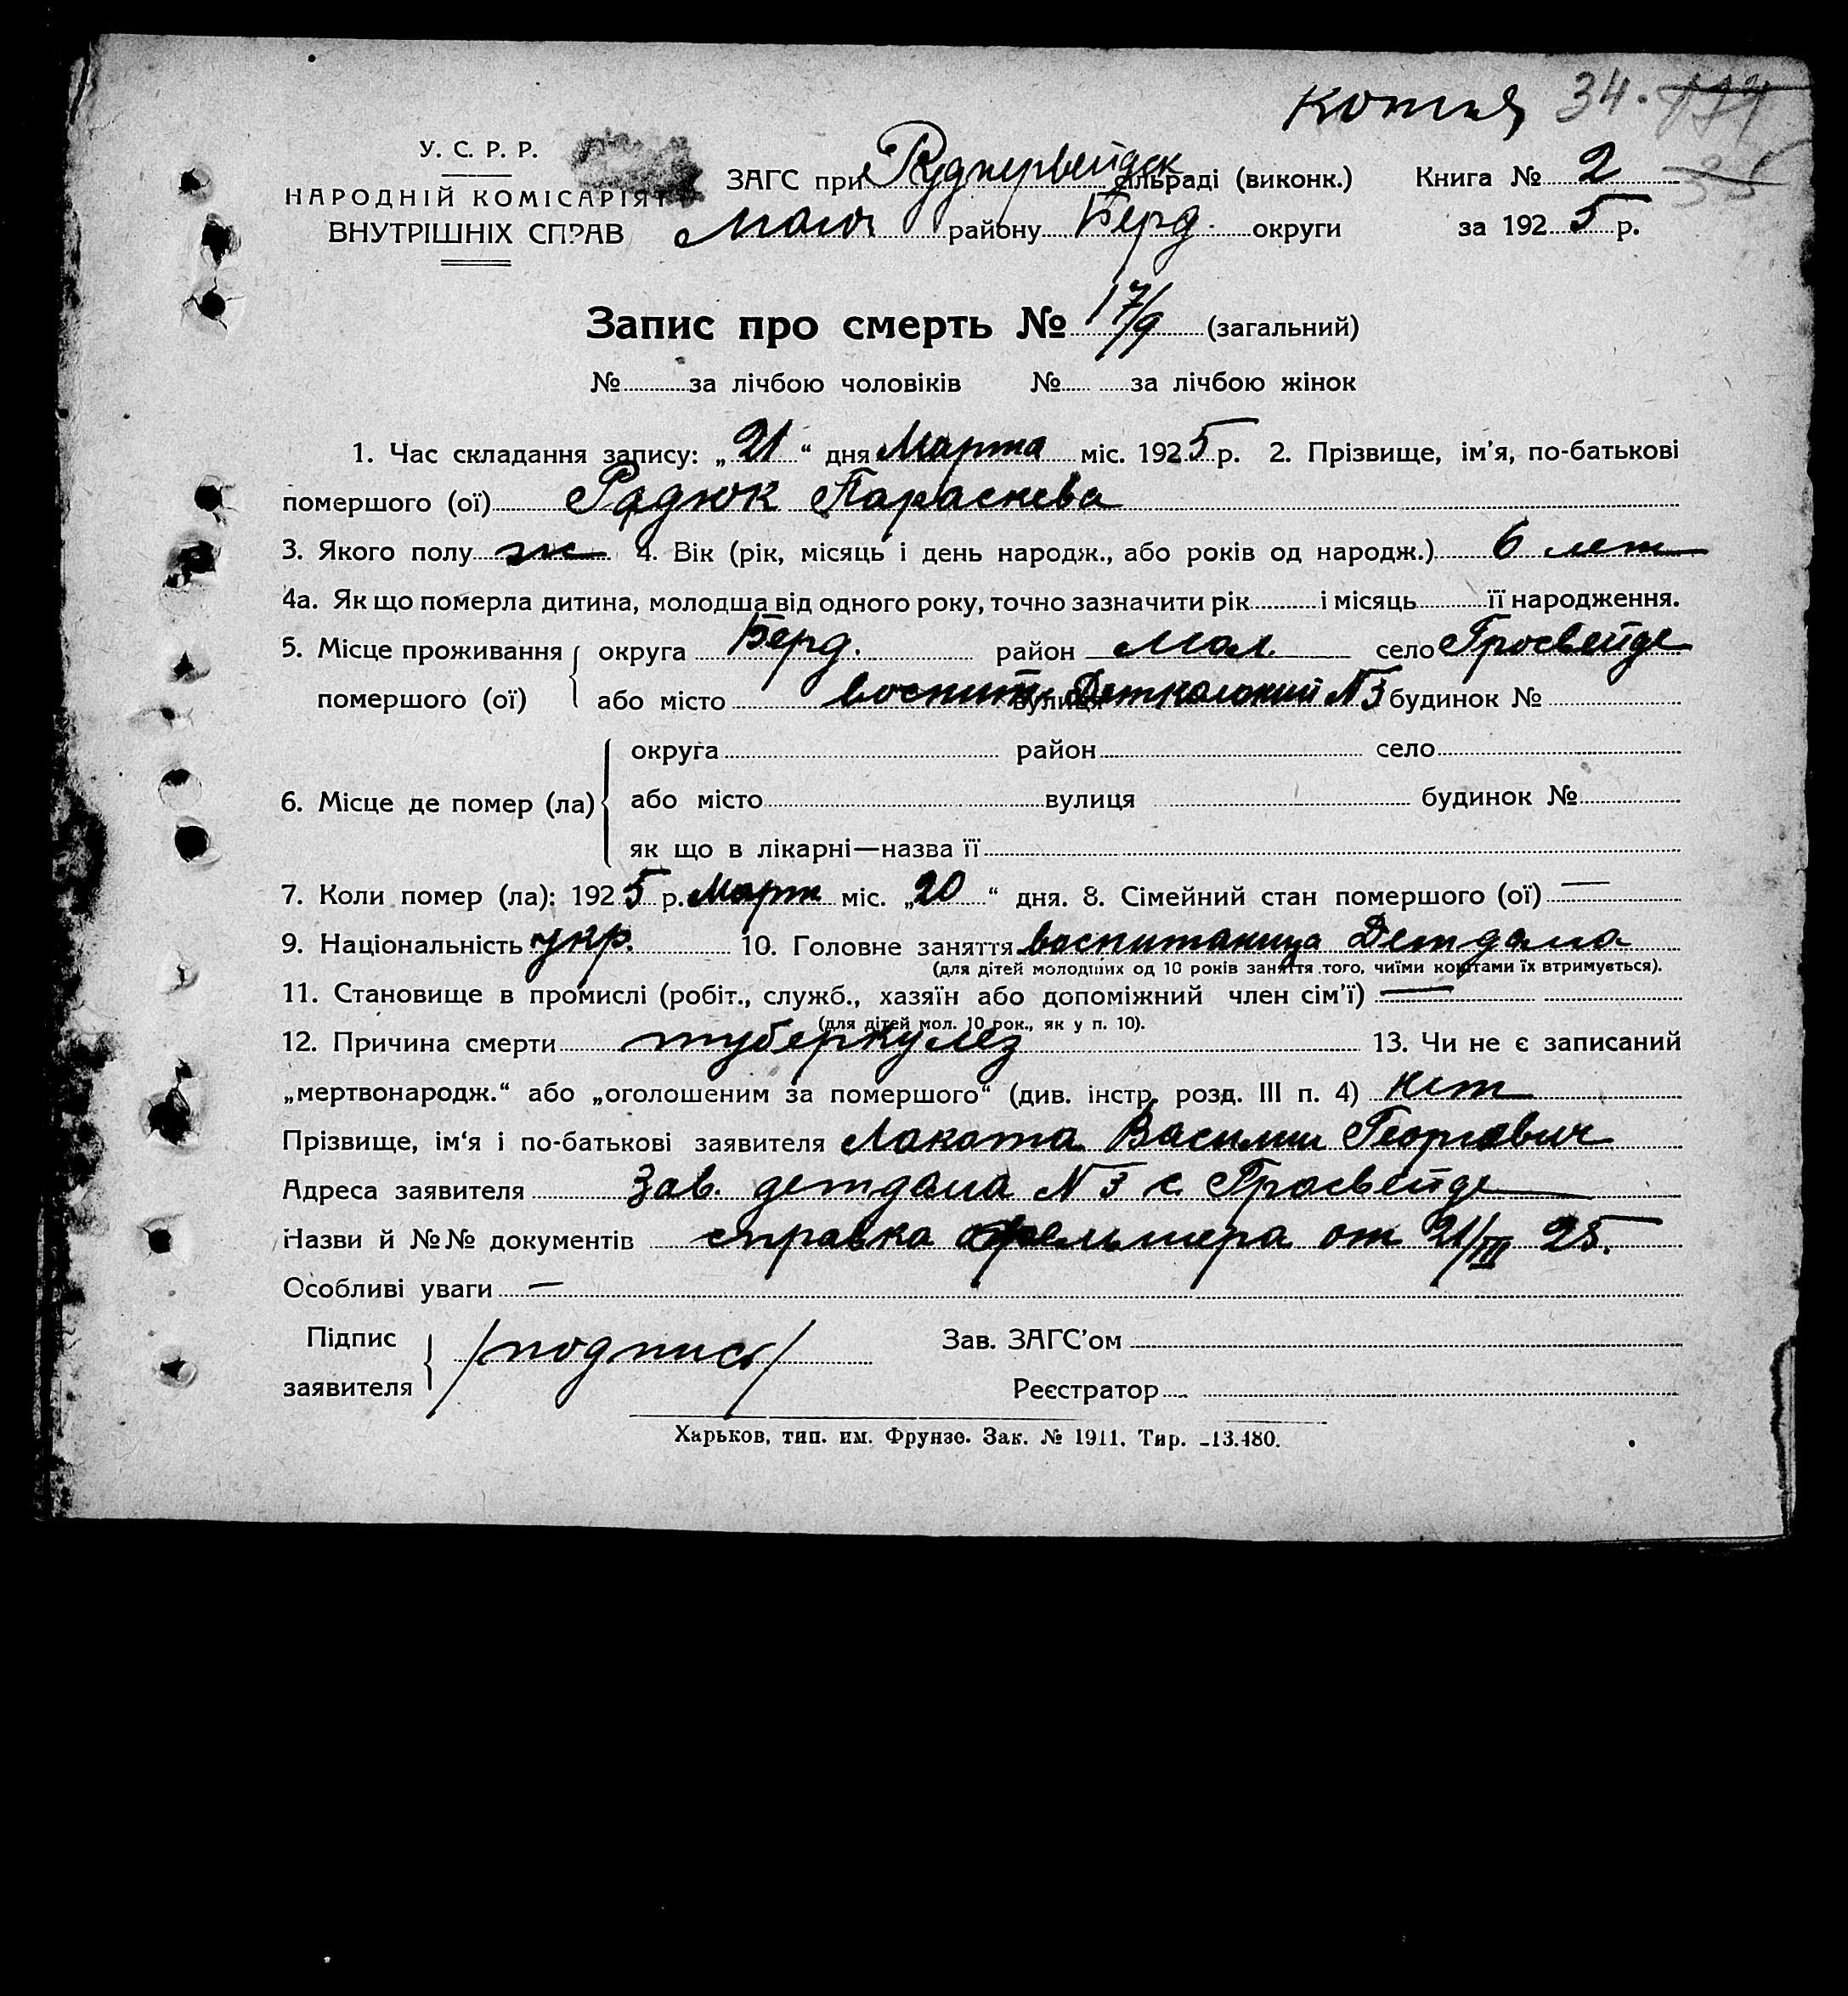 копия 34.
У. С. Р. Р.
НАРОДНІЙ КОМІСАРІЯТ
ВНУТРІШНІХ СПРАВ
ЗАГС при Руднервейдск сільраді (виконк.) Книга № 2
Молоч району Берд. округи за 1925 р.
Запис про смерть № 17/9 (загальний)
№ за лічбою чоловіків № за лічбою жінок
1. Час складання запису: „21“ дня Марта міс. 1925 р. 2. Прізвище, ім'я, по-батькові
помершого (ої) Радюк Параскева
3. Якого полу ж 4. Вік (рік, місяць і день народж., або років од народж.) 6 лет
4а. Як що померла дитина, молодша від одного року, точно зазначити рік і місяць її народження.
5. Місце проживання округа Берд. район Мол. село Гросвейде
помершого (ої) або місто воспит. вулиця Детколоний №3 будинок №
округа район село
6. Місце де помер (ла) або місто вулиця будинок №
як що в лікарні—назва її
7. Коли помер (ла): 1925 р. Март міс. „20“ дня. 8. Сімейний стан помершого (ої) —
9. Національність укр. 10. Головне заняття воспитаница Детдома
(для дітей молодших од 10 років заняття того, чиїми коштами їх втримується).
11. Становище в промислі (робіт., служб., хазяїн або допоміжний член сім'ї) —
(для дітей мол. 10 рок., як у п. 10).
12. Причина смерти туберкулез 13. Чи не є записаний
„мертвонародж.“ або „оголошеним за помершого“ (див. інстр. розд. III п. 4) нет
Прізвище, ім'я і по-батькові заявителя Локота Василии Георгович
Адреса заявителя Зав. детдома №3 с. Гросвейде
Назви й №№ документів справка фельшера от 21/III 25.
Особливі уваги —
Підпис Зав. ЗАГС'ом
/подпись/
заявителя Реєстратор
Харьков, тип. им. Фрунзе. Зак. № 1911. Тир. 13.480.